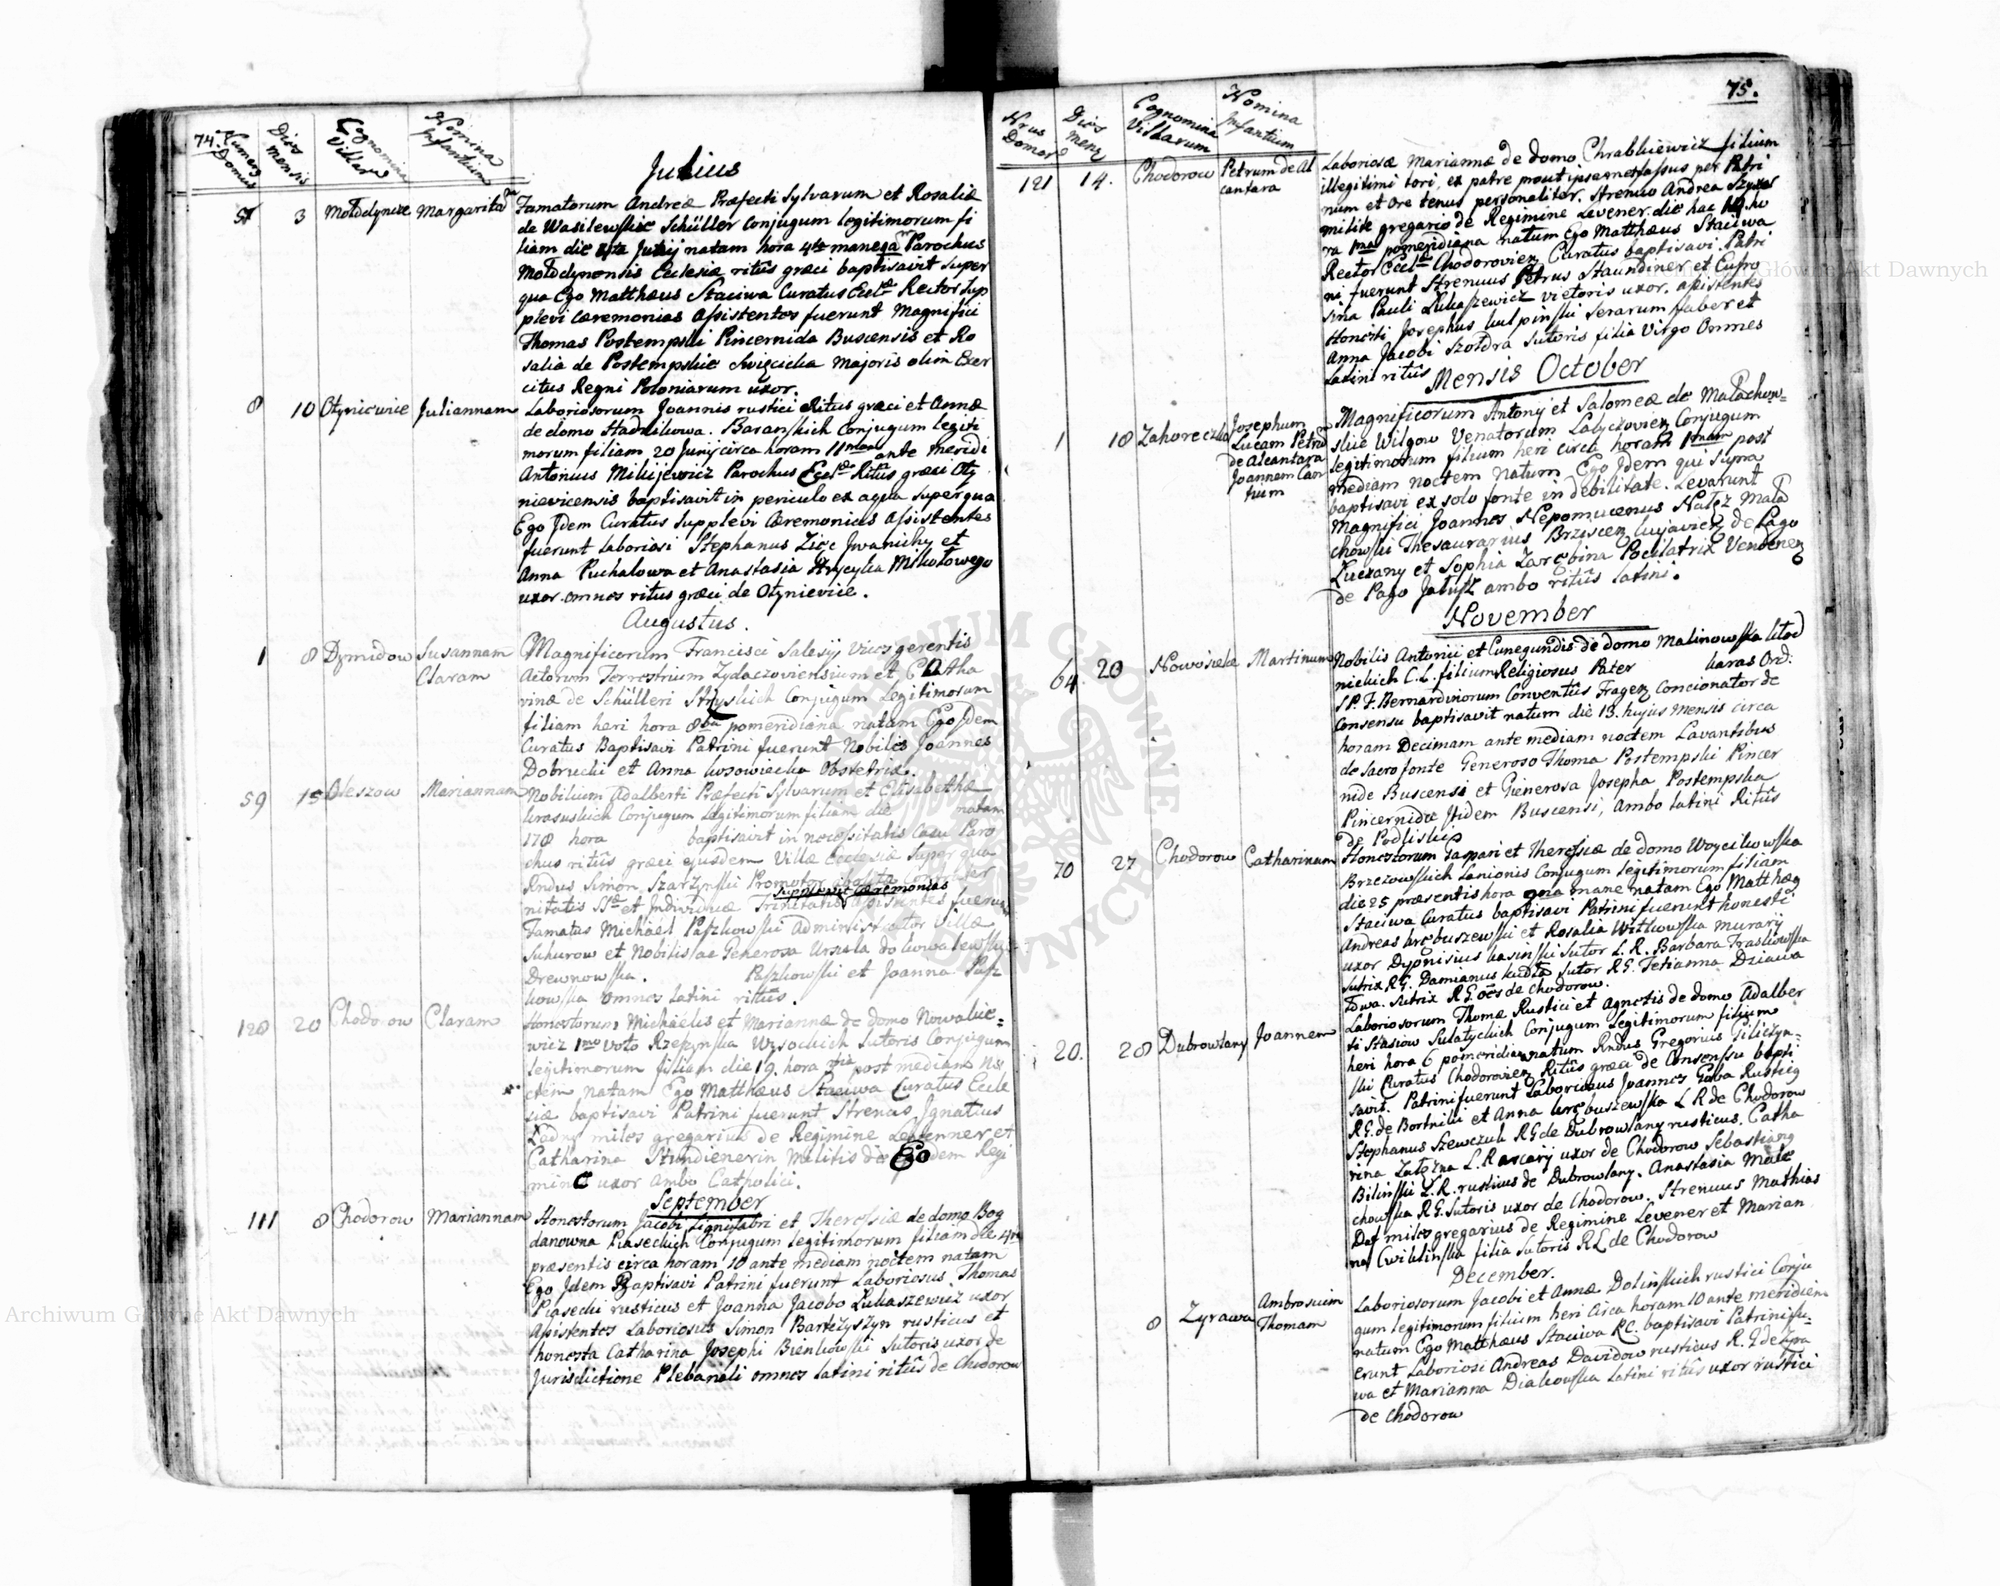 74. Numerus Domus
Dies mensis
Cognomina Villar
Nomina Infantium
Julius
51 3 Mołodynice Margaritam
Famatorum Andreæ Præfecti Sylvarum et Rosaliæ
de Wasilewskie Schüller Conjugum legitimorum fi
liam die Junij natam hora 4ta mane Parochus
Mołodynensis Ecclesiæ ritûs græci baptisavit super
qua Ego Matthæus Staciwa Curatus Eccl Rector sup
plevi Cæremonias Assistentes fuerunt Magnifici
Thomas Postempski Pincernida Buscensis et Ro
salia de Postempskie Swięcicka Majoris olim Exer
citus Regni Poloniarum uxor.
8 10 Otyniewice Juliannam
Laboriosorum Joannis rustici Ritus græci et Annæ
de domo Baranskich Conjugum legiti
morum filiam 20 Junij circa horam 11mam ante meridi
Antonius Parochus Eccl Ritus græci Oty
nievicensis baptisavit in periculo ex aqua super qua
Ego Idem Curatus supplevi Cæremonias Assistentes
fuerunt Laboriosi Stephanus Iwanichy et
Anna Puchalowa et Anastasia Mikołowego
uxor omnes ritus græci de Otynievice.
Augustus.
1 8 Demidow Susannam Claram
Magnificorum Francisci Salesij vices gerentis
Actorum Terrestrium Zydaczoviensium et Catha
rinæ de Schülleri Stryskich Conjugum legitimorum
filiam heri hora 8va pomeridiana natam Ego Idem
Curatus Baptisavi Patrini fuerunt Nobiles Joannes
Dobrucki et Anna Kosowiecka Obstetrix.
59 15 Oleszow Mariannam
Nobilium Adalberti Præfecti Sylvarum et Elisabethæ
Krasuskich Conjugum legitimorum filiam die natam
178 hora baptisavit in necessitatis Casu Paro
chus ritûs græci ejusdem Villæ Ecclesiæ super qua
Rndus Simon Szarzynski Promotor
supplevit Cæremonias
nitatis SSæ et Individuæ Trinitatis Assistentes fuerunt
Famatus Michael Paszkowski Administrator Villæ
Suhurow et Nobilis ac Generosa Ursula de Kowalewskie
Drewnowska. Paszkowski et Joanna Pasz
kowska omnes latini ritûs.
128 20 Chodorow Claram
Honestorum Michaelis et Mariannæ de domo Nowakie=
wicz 1mo voto Rzepynska Wysockich Sutoris Conjugum
legitimorum filiam die 19. hora post mediam no
ctem natam Ego Matthæus Staciwa Curatus Eccle
siæ baptisavi Patrini fuerunt Strenuus Ignatius
Ładny miles gregarius de Regimine et
Catharina Stundienerin Militis de Eodem Regi
mine uxor Ambo Catholici.
September
111 8 Chodorow Mariannam
Honestorum Jacobi Lignifabri et Theresiæ de domo Bog
danowna Piaseckich Conjugum legitimorum filiam die
præsentis circa horam 10 ante mediam noctem natam
Ego Idem Baptisavi Patrini fuerunt Laboriosus Thomas
Piasecki rusticus et Joanna Jacobo Łukaszewicz uxor
Assistentes Laboriosus Simon Bartczyszyn rusticus et
honesta Catharina Josephi Bienkowski Sutoris uxor de
Jurisdictione Plebanali omnes latini ritûs de Chodorow
75.
Nrus Domor
Dies Mens
Cognomina Villarum
Nomina Infantium
121 14. Chodorow Petrum de Al
cantara
Laboriosæ Mariannæ de domo Chrabkiewicz filium
illegitimi tori, ex patre prout ipsemet fassus per Patri
num et ore tenus personaliter. Strenuo Andrea
milite gregario de Regimine Levener die hac 14 ho
ra 1ma pomeridiana natum Ego Matthæus Staciwa
Rector Eccl Chodorovien Curatus baptisavi. Patri
ni fuerunt Strenuus Petrus Staundiner et Eufro
sina Pauli Łukaszewicz vietoris uxor. Assistentes
Honesti Josephus Kulpinski Serarum faber et
Anna Jacobi Szołdra Sutoris filia Virgo Omnes
Latini ritûs
Mensis October
1 18 Zahoreczko Josephum
Lucam Petru
de Alcantara
Joannem Can
tium
Magnificorum Antonij et Salomeæ de Małachow=
skie Wilgow Venatorum Latyczovien Conjugum
legitimorum filium heri circa horam 1mam post
mediam noctem natum Ego Idem qui supra
baptisavi ex solo fonte in debilitate. Levarunt
Magnifici Joannes Nepomucenus Nałęz Mała
chowski Thesaurarius Brzescen Cujavien de Pago
Łuczany et Sophia Zarębina Pocillatrix Vendenen
de Pago ambo ritûs latini.
November
64 20 Nowosielce Martinum
Nobilis Antonii et Cunegundis de domo Malinowska
C. L. filium Religiosus Pater Ord:
S P. F. Bernardinorum Conventûs Fragen Concionator de
Consensu baptisavit natum die 13. hujus mensis circa
horam Decimam ante mediam noctem Lavantibus
de sacro fonte Generoso Thoma Postempski Pincer
nide Buscensi et Generosa Josepha Postempska
Pincernidæ Itidem Buscensi, Ambo latini Ritûs
de Podliski
70 27 Chodorow Catharinam
Honestorum Gaspari et Theresiæ de domo Woycikowska
Brzezowskich Lanionis Conjugum legitimorum filiam
die 25 præsentis hora mane natam Ego Matthæus
Staciwa Curatus baptisavi Patrini fuerunt honesti
Andreas Krębuszewski et Rosalia Witkowska murarij
uxor Dyonisius Kasinski Sutor L. R. Barbara Traskowska
Sutrix R.G. Damianus Sutor R G. Tetianna
Sutrix R G. oes de Chodorow.
20. 28 Dubrowlany Joannem
Laboriosorum Thomæ Rustici et Agnetis de domo Adalber
ti Stasiow Sulatyckich Conjugum legitimorum filium
heri hora 6 pomeridiana natum Rndus Gregorius
ski Curatus Chodorovien Ritûs græci de Consensu bapti
savit. Patrini fuerunt Laboriosus Joannes Rusticus
R G. de Bortniki et Anna Krębuszewska L R de Chodorow
Stephanus Szewczuk R G de Dubrowlany rusticus. Catha
rina L. R uxor de Chodorow Sebastianus
Bilinski L. R. rusticus de Dubrowlany. Anastasia
chowska R G. Sutoris uxor de Chodorow. Strenuus Mathias
miles gregarius de Regimine Levener et Marian
na Cwiklinska filia Sutoris R L de Chodorow
December.
8 Zyrawa Ambrosium Thomam
Laboriosorum Jacobi et Annæ Dolinskich rustici Conju
gum legitimorum filium heri circa horam 10 ante meridiem
natum Ego Matthæus Staciwa R C. baptisavi Patrini fu=
erunt Laboriosi Andreas Davidow rusticus R. G de Zyra
wa et Marianna Diakowska Latini ritûs uxor rustici
de Chodorow
Archiwum Główne Akt Dawnych
Archiwum Główne Akt Dawnych
ARCHIWUM GŁÓWNE AKT DAWNYCH